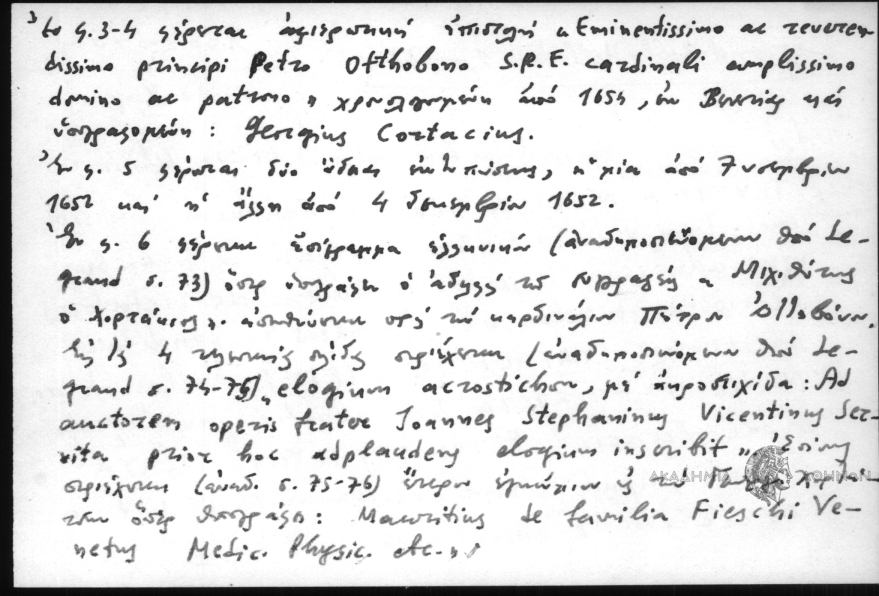 Ἐν σ. 3-4 φέρεται ἀφιερωτική ἐπιστολή « Eminentissimo ac reveren
dissimo principi Petro Otthobono S.R.E. cardinali amplissimo
domino ac patrono » χρονολογημένη ἀπό 1654, ἐν Βενετίᾳ καί
ὑπογραφομένη : Georgius Cortacius.
Ἐν σ. 5 φέρονται δύο ἄδειαι ἐκτυπώσεως, ἡ μία ἀπό 7 νοεμβρίου
1652 καί ἡ ἄλλη ἀπό 4 δεκεμβρίου 1652.
Ἐν σ. 6 φέρεται ἐπίγραμμα ἑλληνικόν (ἀναδημοσιευόμενον ὑπό Le-
grand σ. 73) ὅπερ ὑπογράφει ὁ ἀδελφός τοῦ συγγραφέως «
ὁ Χορτάκιος». ἀπευθύνεται πρός τόν καρδινάλιον Πέτρον Ὀθθοβόνον.
Εἰς τάς 4 τελευταίας σελίδας περιέχεται (ἀναδημοσιευόμενον ὑπό Le-
grand σ. 74-75) „elogium acrostichon, μέ ἀκροστιχίδα : Ad
auctorem operis frater Joannes Stephaninus Vicentinus Ser-
vita prior hoc adplaudens elogium inscribit ». Ἐπίσης
περιέχεται (ἀναδ. σ. 75-76) ἕτερον ἐγκώμιον εἰς τόν
ὅπερ ὑπογράφει : Mauritius de familia Fieschi Ve-
netus Medic. Physic. etc. »
ΑΚΑΔΗΜΙΑ ΑΘΗΝΩΝ